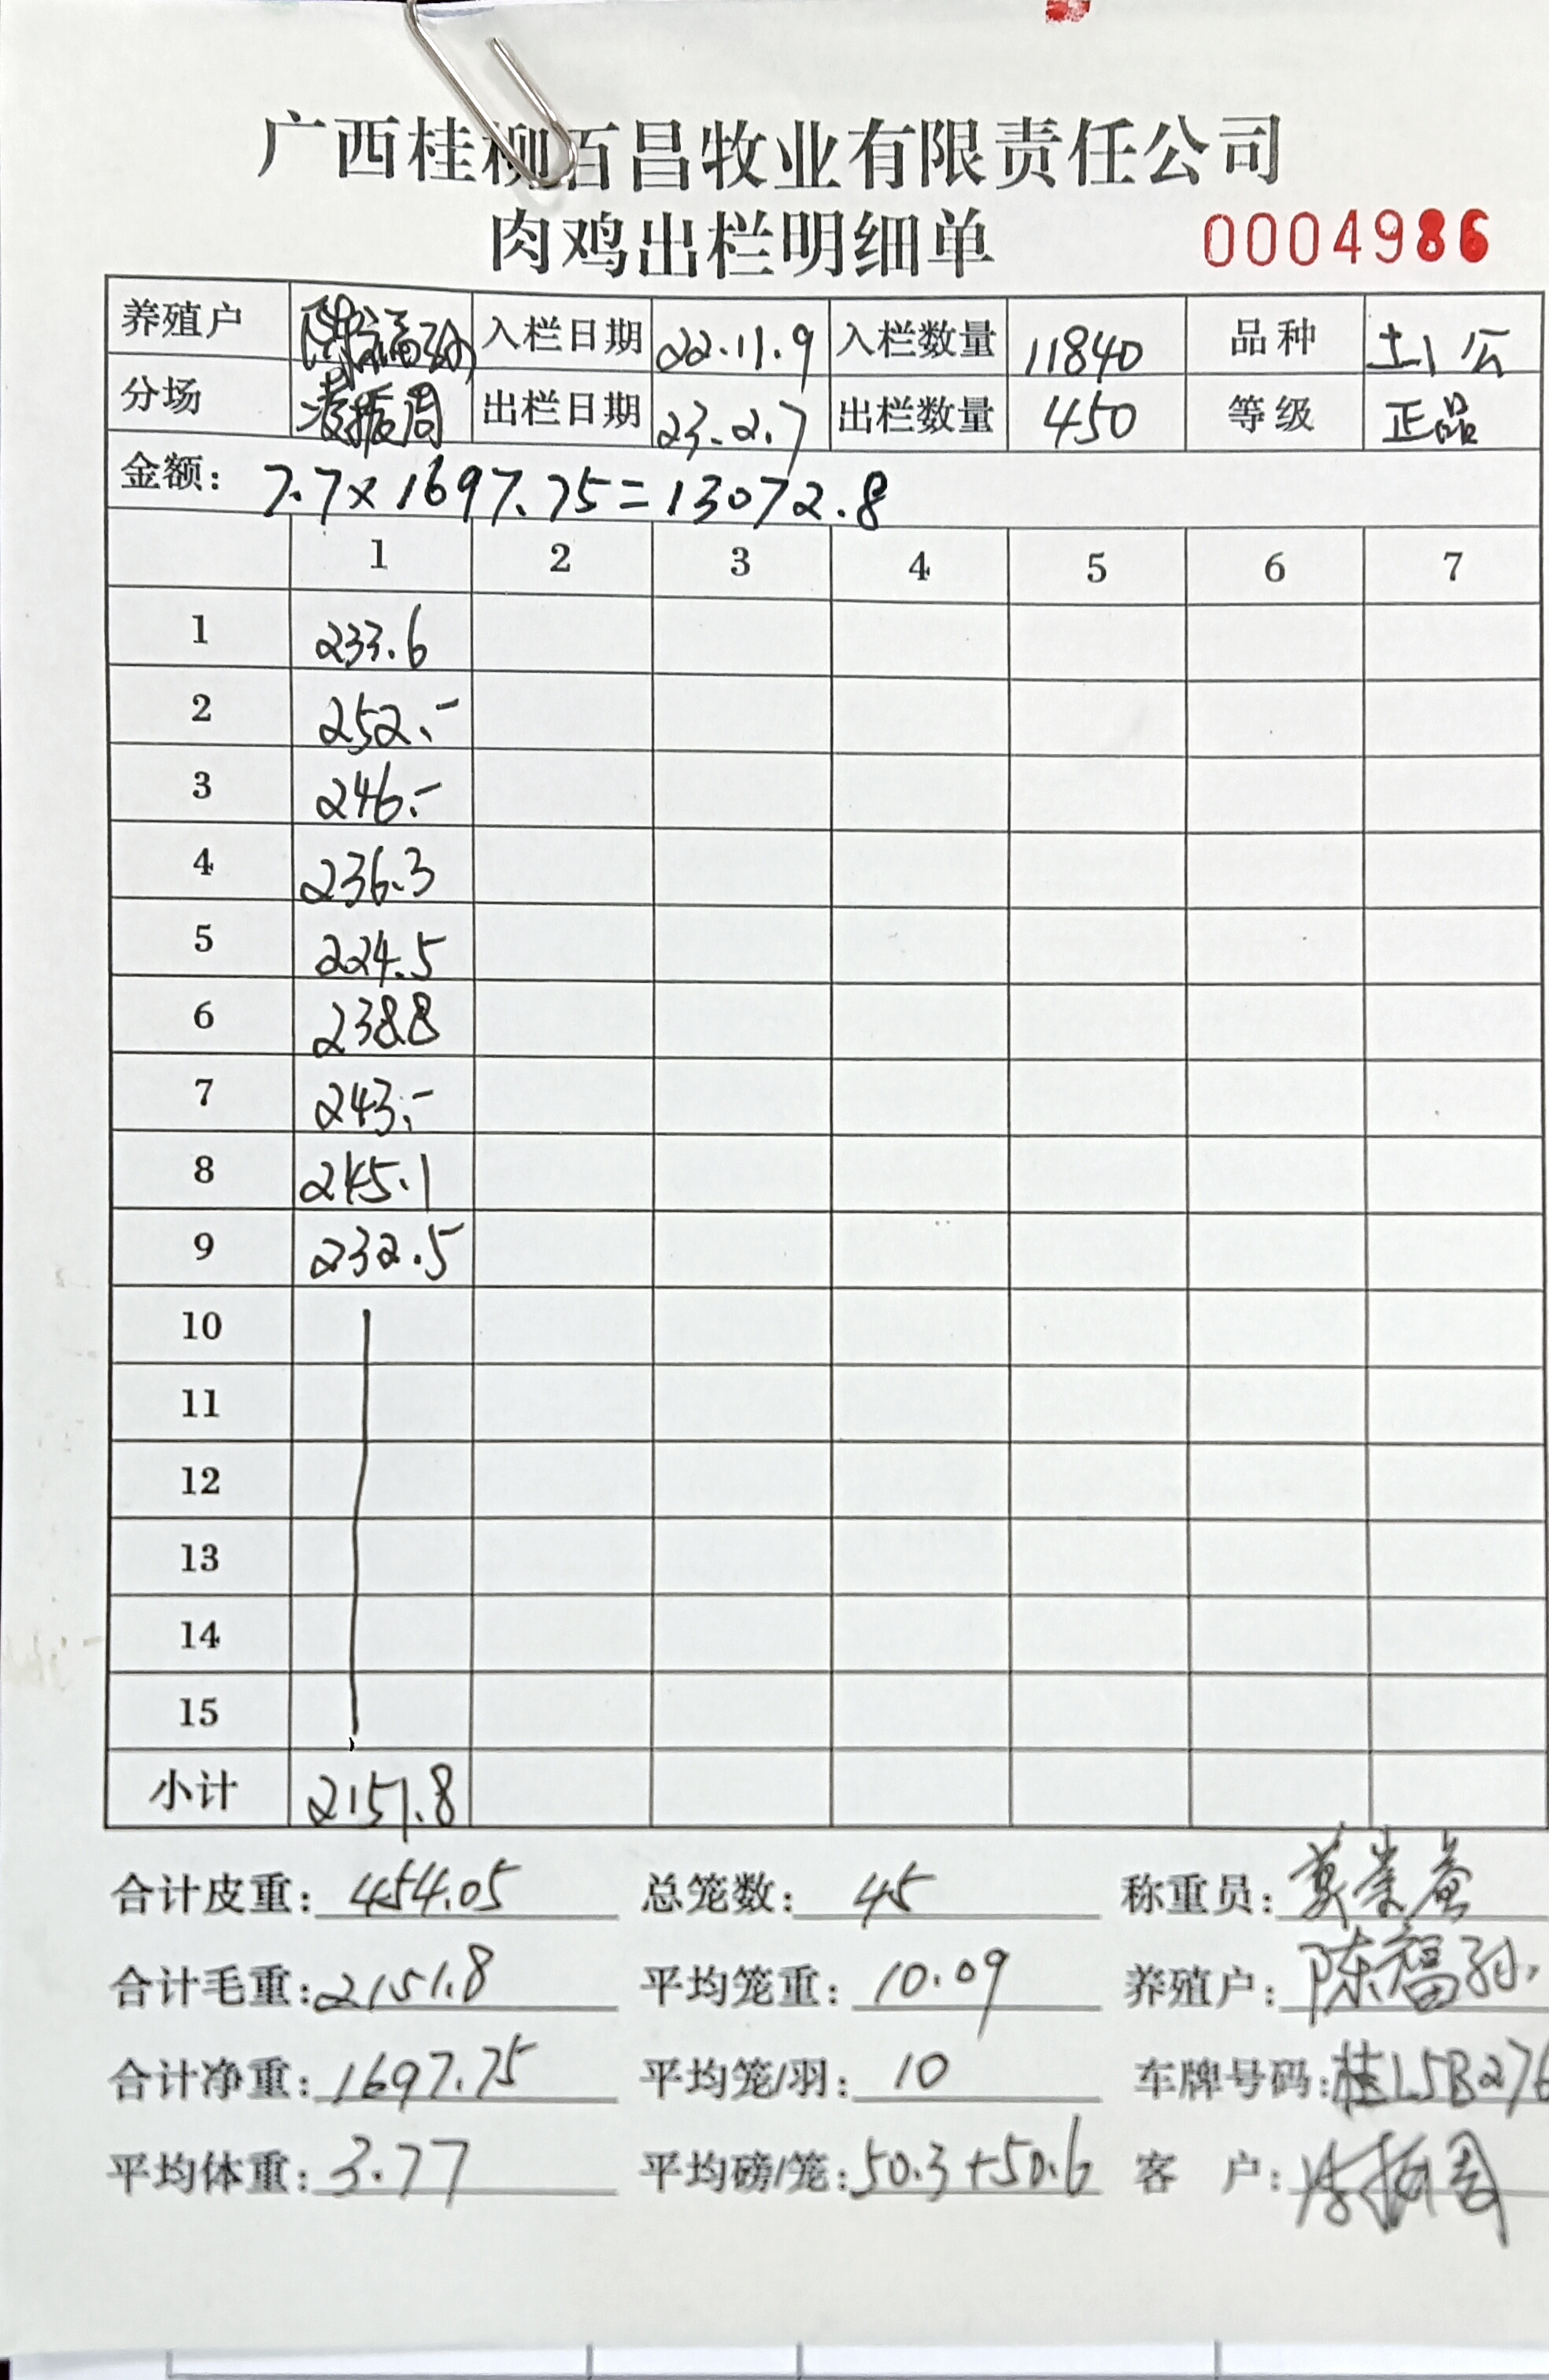 广西桂柳百昌牧业有限责任公司
肉鸡出栏明细单 0004986
养殖户 陈福孙 入栏日期 22.11.9 入栏数量 11840 品种 土1公
分场 凌振周 出栏日期 23.2.7 出栏数量 450 等级 正品
金额: 7.7×1697.75=13072.8
1 2 3 4 5 6 7
1 233.6
2 252.-
3 246.-
4 236.3
5 224.5
6 238.8
7 243.-
8 245.1
9 232.5
10
11
12
13
14
15
小计 2151.8
合计皮重: 454.05 总笼数: 45 称重员:
合计毛重: 2151.8 平均笼重: 10.09 养殖户: 陈福孙
合计净重: 1697.75 平均笼/羽: 10 车牌号码: 桂L5B276
平均体重: 3.77 平均磅/笼: 50.3+50.6 客 户: